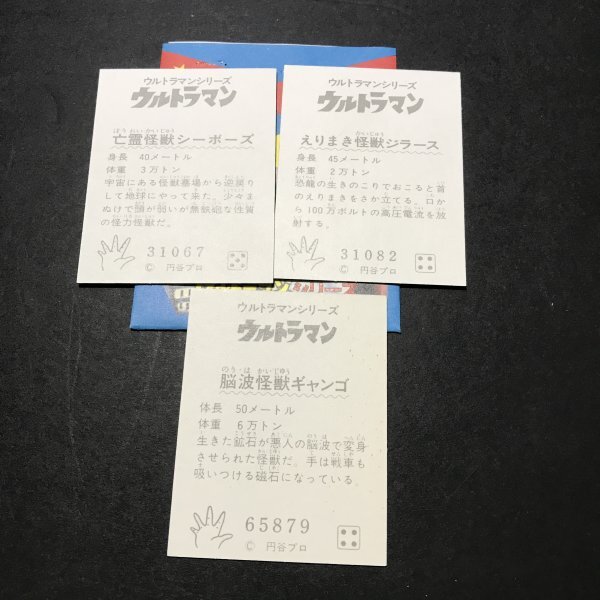 ウルトラマンシリーズ
ウルトラマン
ぼうれいかいじゅう
亡霊怪獣シーボーズ
身長 40メートル
体重 3万トン
宇宙にある怪獣墓場から逆戻り
して地球にやって来た。少々ま
ぬけで頭が弱いが無鉄砲な性質
の怪力怪獣だ。
31067
© 円谷プロ
ウルトラマンシリーズ
ウルトラマン
かいじゅう
えりまき怪獣ジラース
身長 45メートル
体重 2万トン
恐龍の生きのこりでおこると首
のえりまきをさか立てる。口か
ら100万ボルトの高圧電流を放
射する。
31082
© 円谷プロ
ウルトラマンシリーズ
ウルトラマン
のう は かいじゅう
脳波怪獣ギャンゴ
体長 50メートル
体重 6万トン
生きた鉱石が悪人の脳波で変身
させられた怪獣だ。手は戦車も
吸いつける磁石になっている。
65879
© 円谷プロ